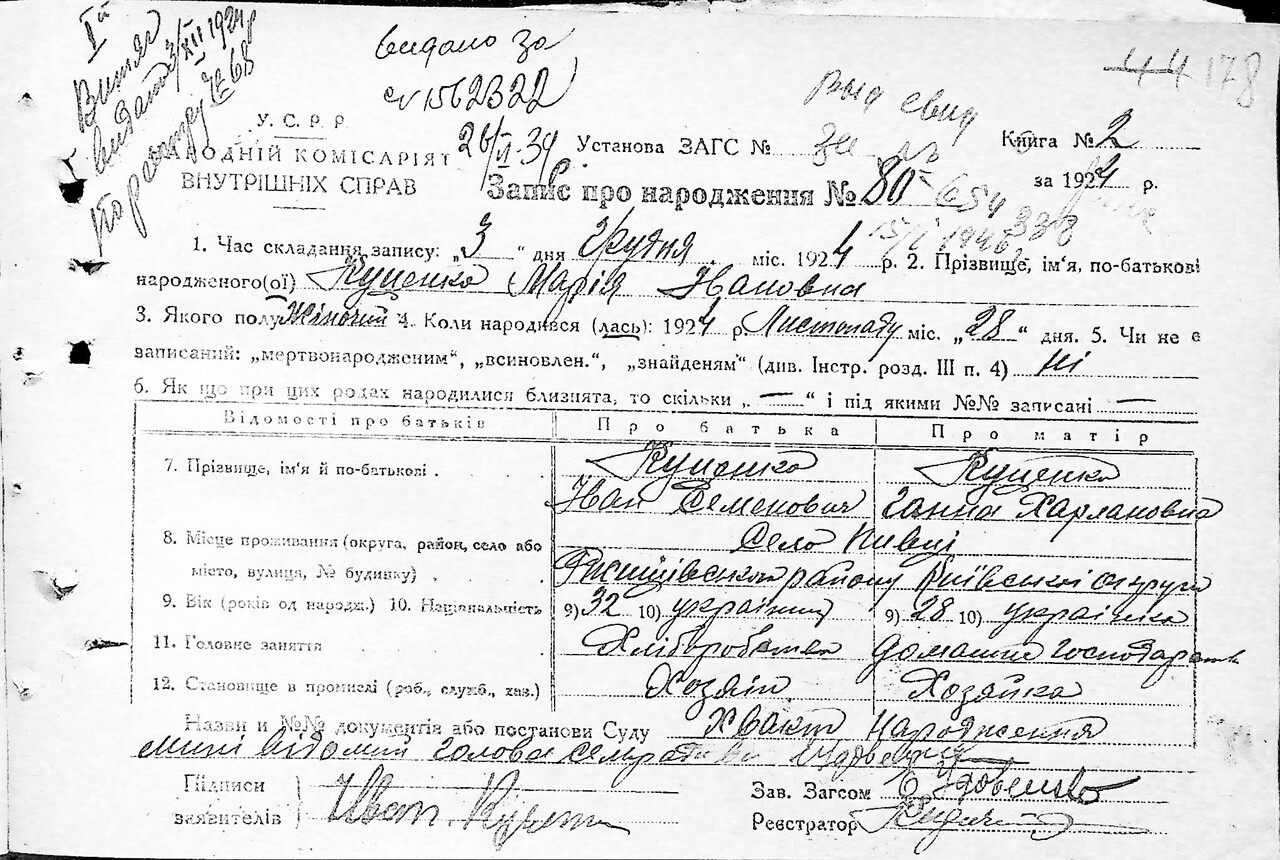 Iй
Витяг
видано 3/XII 1924 р
По реєстру № 68
видано за
№ 1562322
26/VI-34
44 178
Выд свид
за №
654338
15/I 1946
У. С. Р. Р
НАРОДНІЙ КОМІСАРІЯТ
ВНУТРІШНІХ СПРАВ
Установа ЗАГС №
Книга № 2
Запис про народження № 80
за 1924 р.
1. Час складання запису: „3“ дня Грудня міс. 1924 р. 2. Прізвище, ім'я, по-батькові
народженого(ої) Куценко Марія Івановна
3. Якого полу Жіночий 4. Коли народився (лась): 1924 р. Листопаду міс. „28“ дня. 5. Чи не є
записаний: „мертвонародженим“, „всиновлен.“, „знайденям“ (див. Інстр. розд. III п. 4) ні
6. Як що при цих родах народилися близнята, то скільки „—“ і під якими №№ записані —
Відомості про батьків Про батька Про матір
7. Прізвище, ім'я й по-батькові . Куценко Куценко
Іван Семенович Ганна Харлановна
8. Місце проживання (округа, район, село або Село Пивці
місто, вулиця, № будинку) . Ржищівського району Київської округи
9. Вік (років од народж.) 10. Національність 9) 32 10) українец 9) 28 10) українка
11. Головне заняття Хліборобство домашнє господарств
12. Становище в промислі (роб., служб., хаз.) Хозяін Хозяйка
Назви и №№ документів або постанови Суду Хвакт Народження
мині відомий голова сельради
Підписи
заявителів Иван Куцен
Зав. Загсом Удовенко
Реєстратор